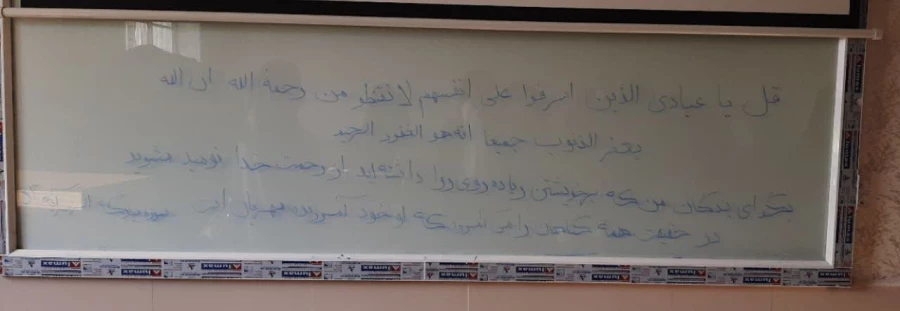 قل یا عبادی الذین اسرفوا علی انفسهم لا تقنطو من رحمة الله ان الله
یغفر الذنوب جمیعا انه هو الغفور الرحیم
بگو ای بندگان من که بر خویشتن زیاده روی روا داشته اید از رحمت خدا نومید مشوید
در حقیقت همه گناهان را می آمرزد که او خود آمرزنده مهربان است
Alumax